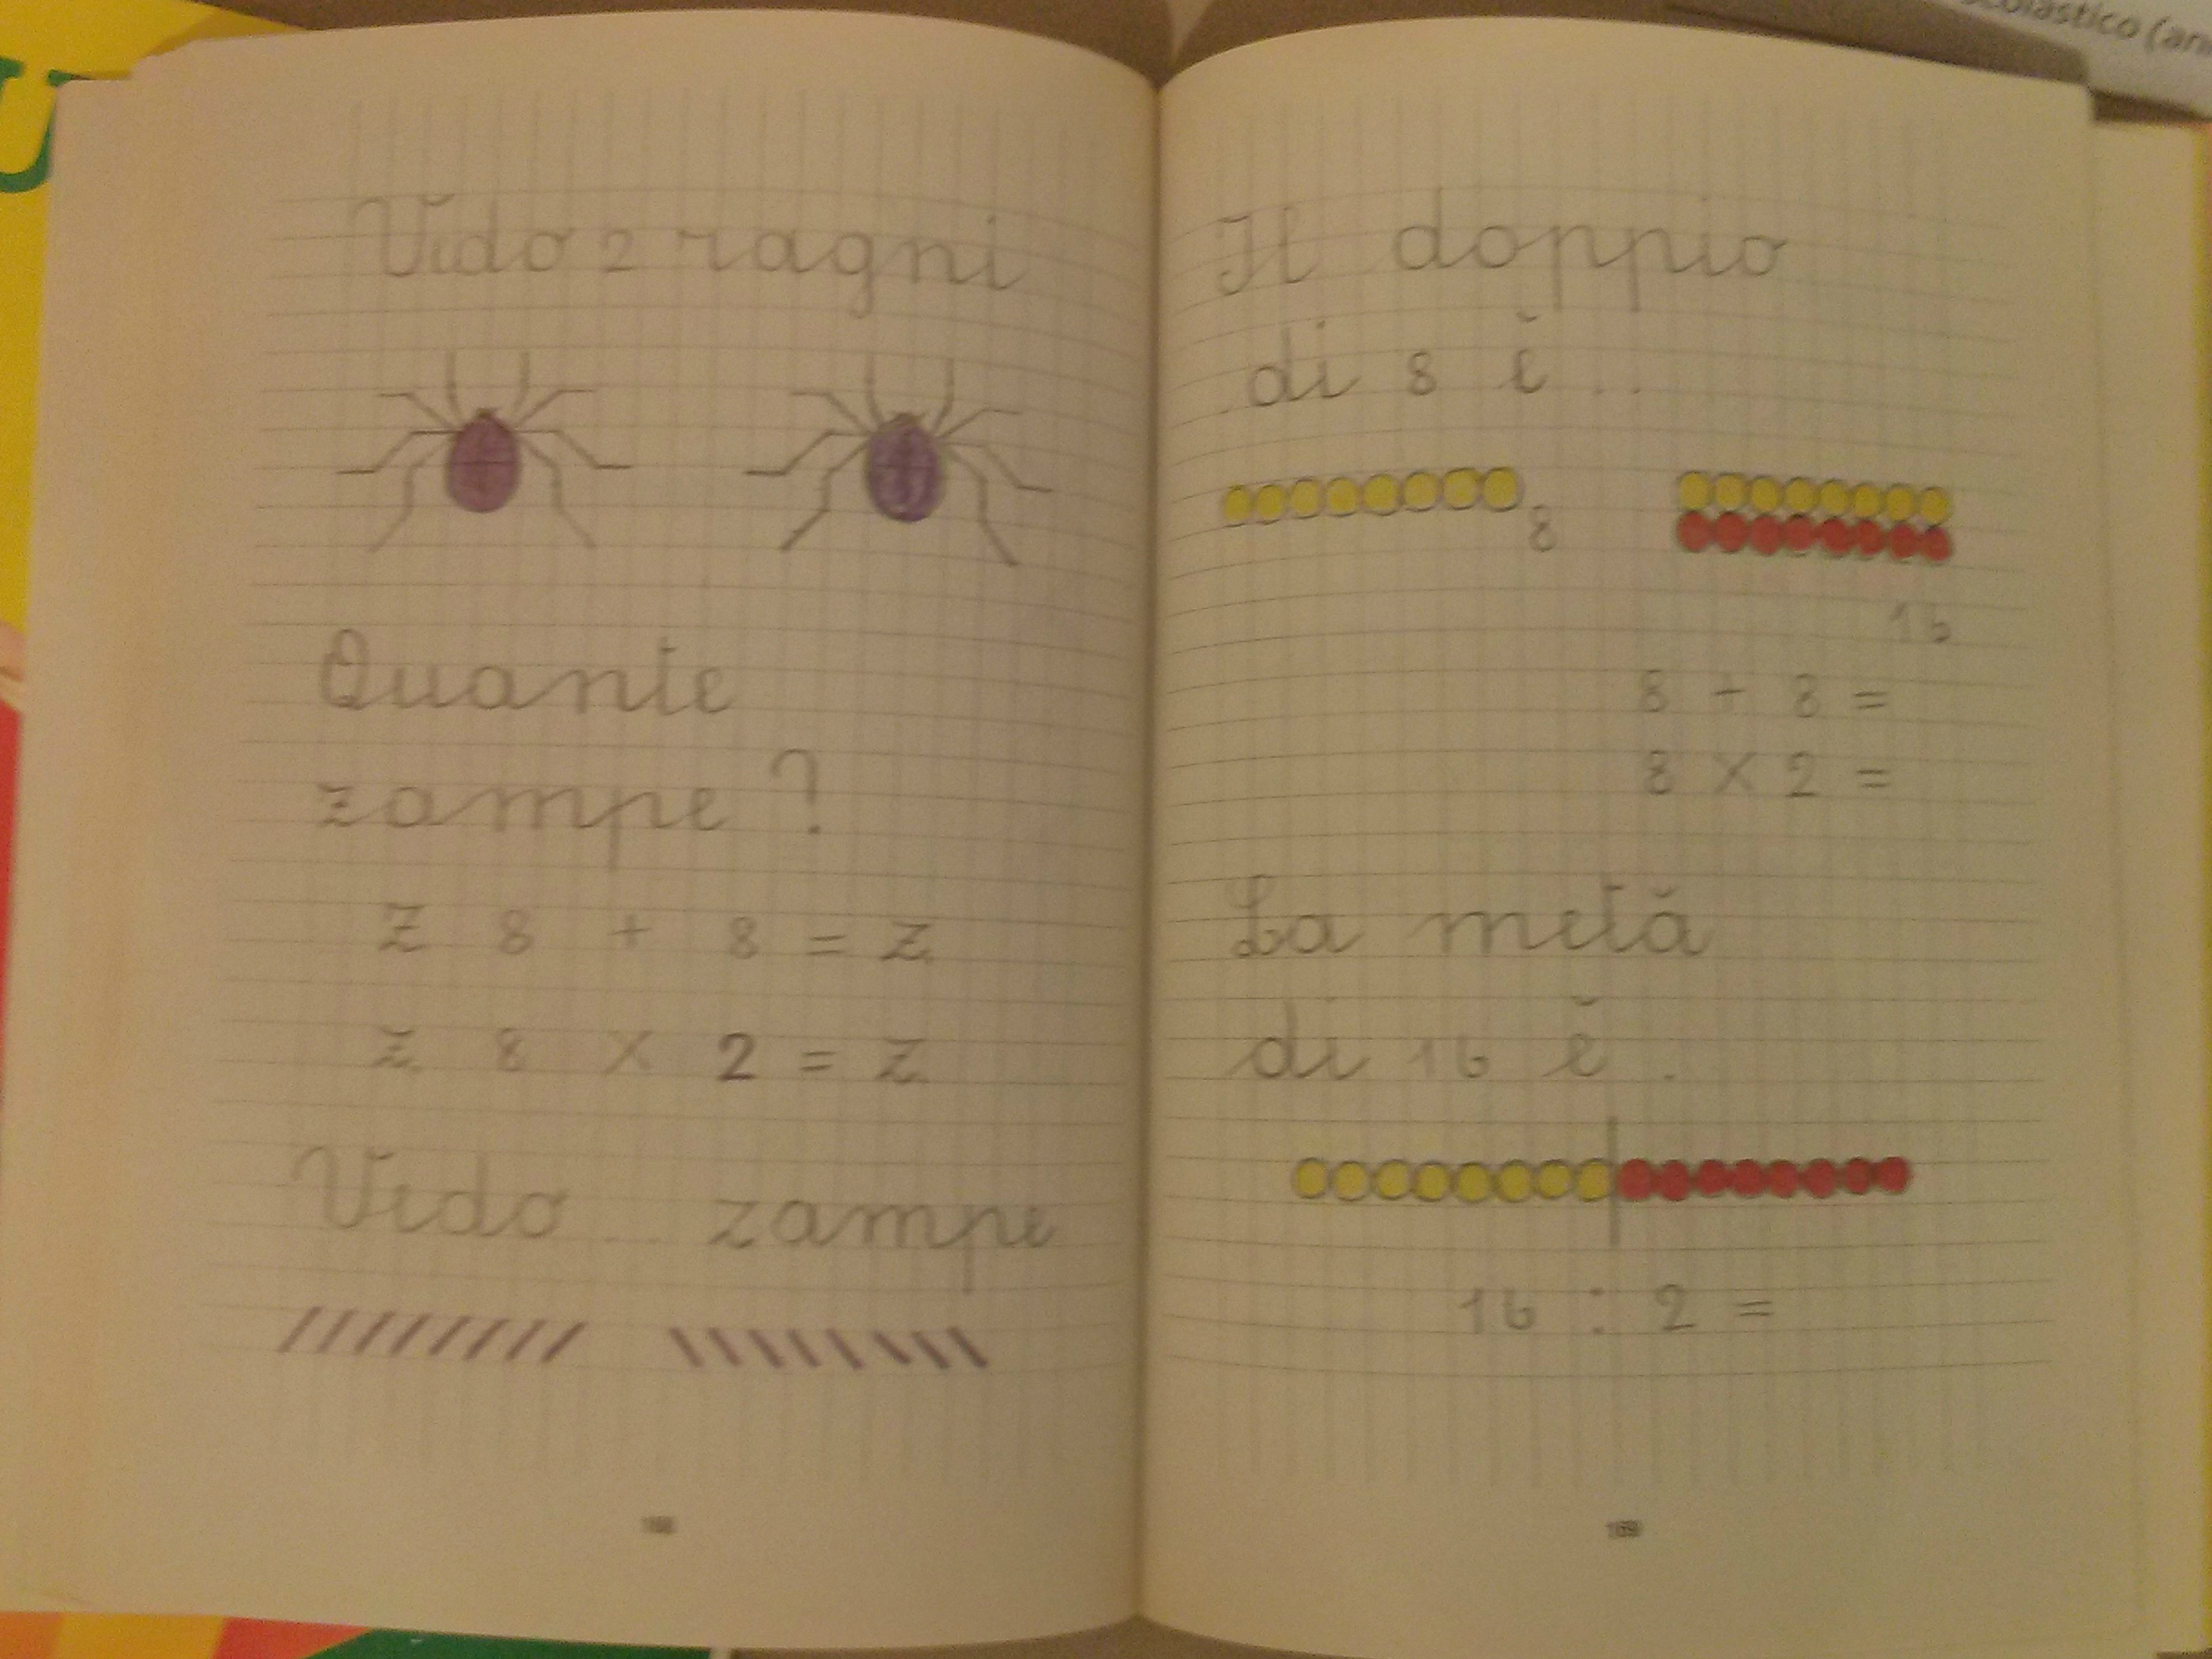 U
scolastico (an
Vedo 2 ragni
Quante
zampe?
z 8 + 8 = z
z 8 x 2 = z
Vedo .... zampe
168
Il doppio
di 8 è ..
8
16
8 + 8 =
8 x 2 =
La metà
di 16 è .
16 : 2 =
169